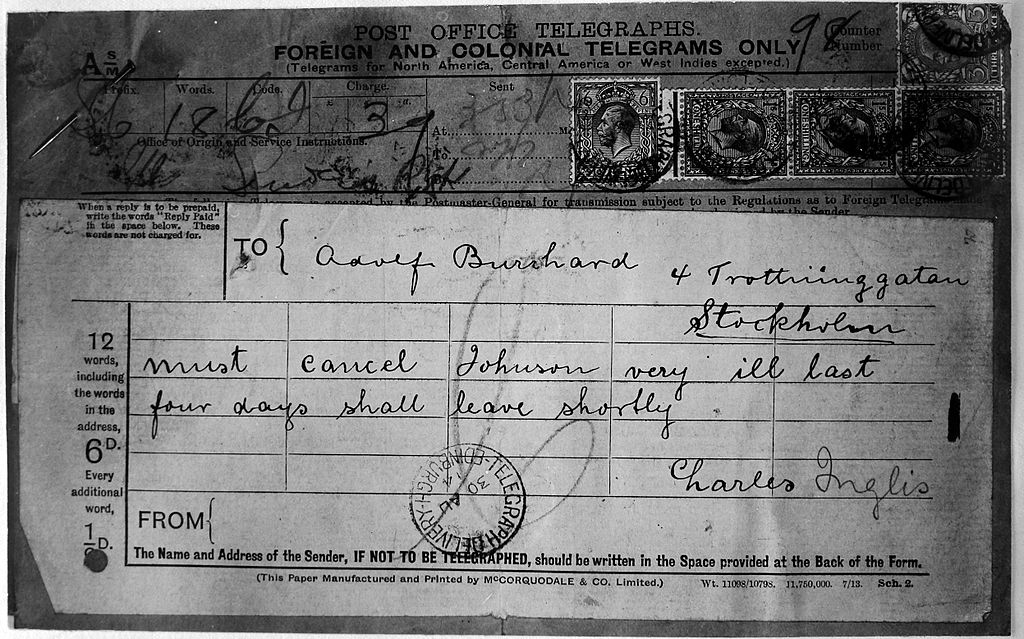 POST OFFICE TELEGRAPHS.
FOREIGN AND COLONIAL TELEGRAMS ONLY
(Telegrams for North America, Central America or West Indies excepted.)
98
Counter
Number
A S/M
Prefix. Words. Code. Charge. Sent
18 3
At M
To
Office of Origin and Service Instructions.
Telegram is accepted by the Postmaster-General for transmission subject to the Regulations as to Foreign Telegrams
by the Sender
When a reply is to be prepaid,
write the words "Reply Paid"
in the space below. These
words are not charged for.
TO { Adolf Burchard
4 Trottninggatan
Stockholm
must cancel Johnson very ill last
four days shall leave shortly
Charles Inglis
12
words,
including
the words
in the
address,
6D.
Every
additional
word,
1/2D.
TELEGRAPH DELIVERY-EDINBURGH
30 AU 14
FROM {
The Name and Address of the Sender, IF NOT TO BE TELEGRAPHED, should be written in the Space provided at the Back of the Form.
(This Paper Manufactured and Printed by McCORQUODALE & CO. Limited.) Wt. 11098/1079S. 11,750,000. 7/13. Sch. 2.